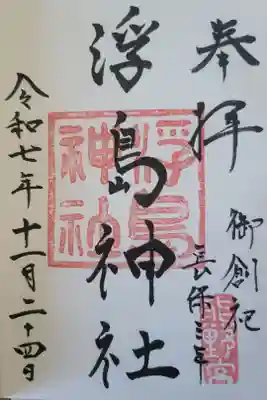 奉拝
御創祀
長保三年
浮島神社
浮島神社
令和七年十一月二十四日